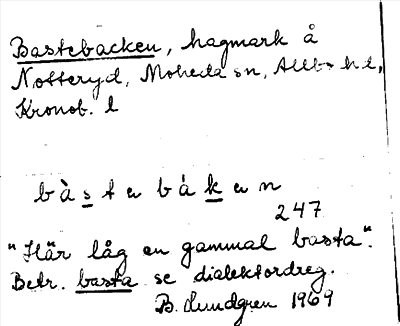 Bastebacken, hagmark å
Notteryd, Moheda sn, Allbo hd,
Kronob. l
bàste båken
247
"Här låg en gammal basta".
Betr. basta se dialektordreg.
B. Lundgren 1969